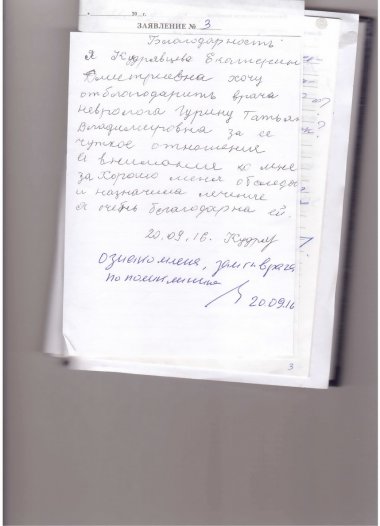 20 г.
ЗАЯВЛЕНИЕ № 3
Благодарность
Я Кудрявцева Екатерин
Дмитриевна хочу
отблагодарить врача
невролога Гурину Татьян
Владимировна за ее
чуткое отношения
и внимания ко мне
за хорошо меня обследов
и назначила лечение
я очень благодарна ей.
20.09.16. Кудряв
ознакомлена, зам гл врача
по поликлинике
20.09.16
3